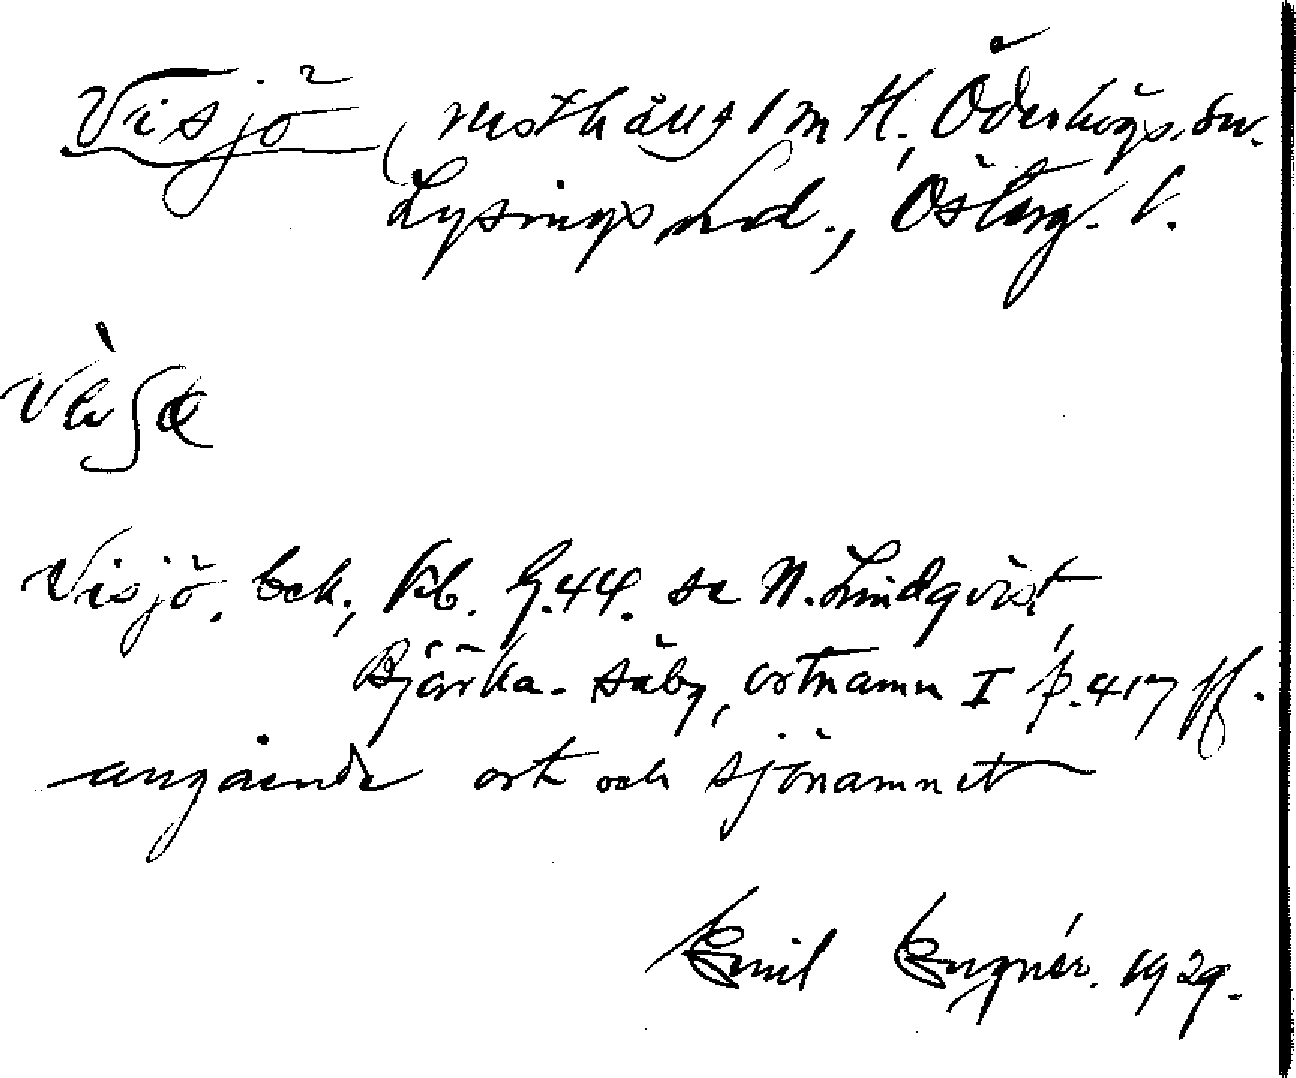 Visjö, rusthåll 1 m H, Ödeshögs sn.
Lysings hd., Österg. l.
Visjö. bek., kb. G.44. se N. Lindqvist,
Bjärka-Säby, ortnamn I p. 417 ff.
angående ort och sjönamnet
Emil Engnér. 1929.